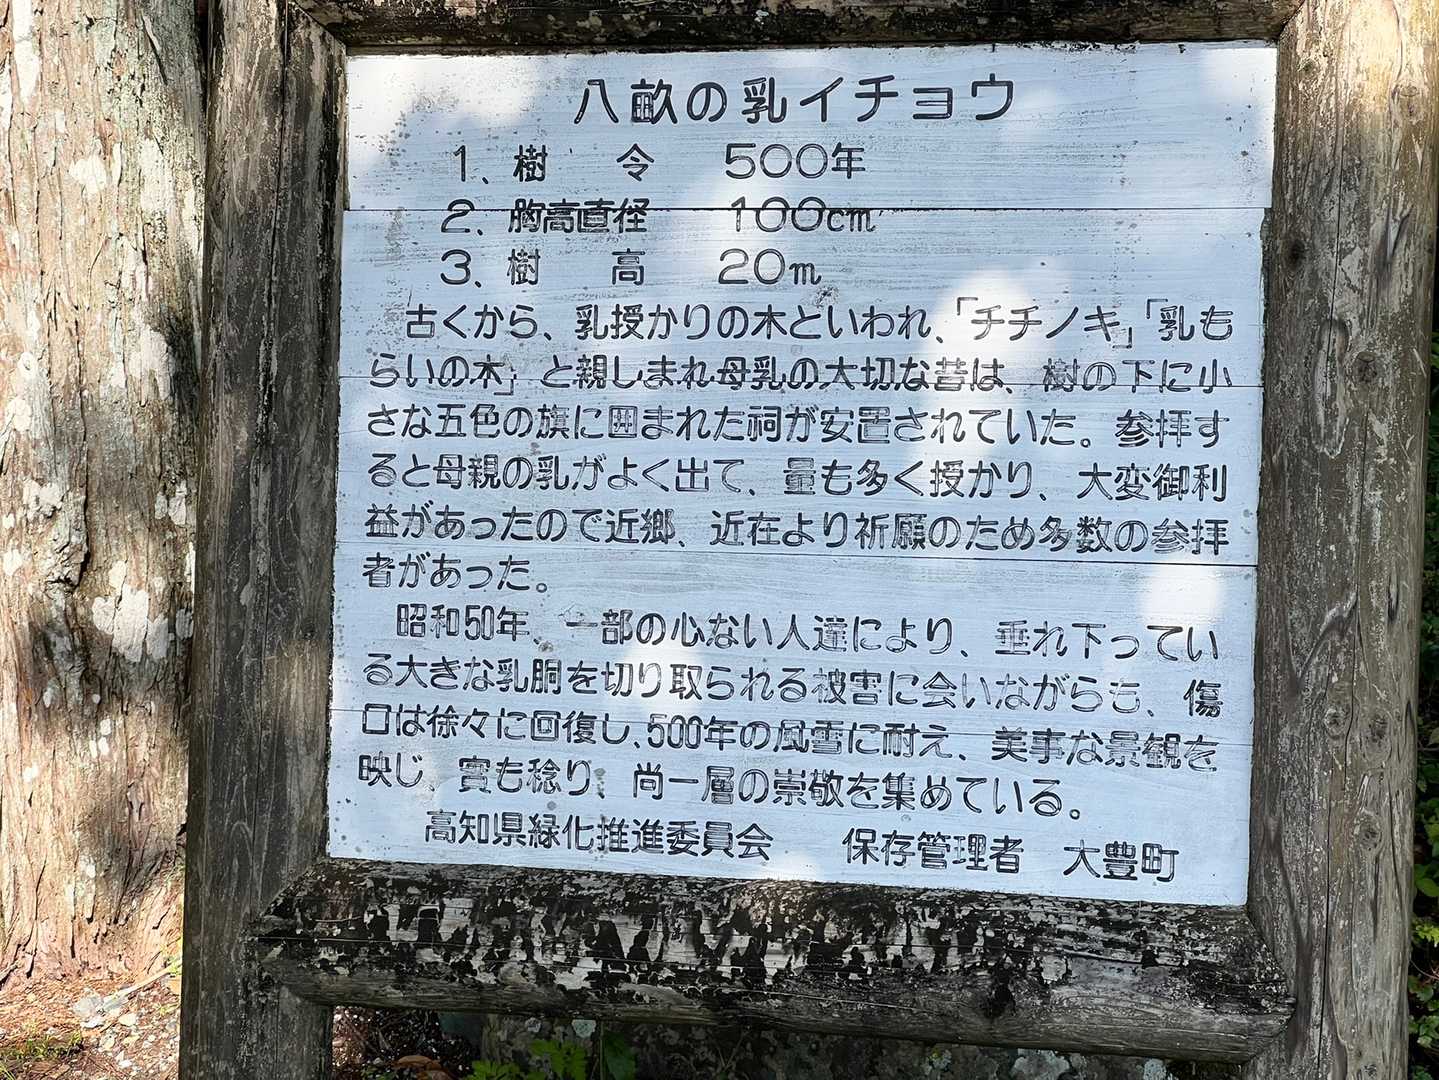 八畝の乳イチョウ
1、樹　令　500年
2、胸高直径　100cm
3、樹　高　20m
古くから、乳授かりの木といわれ、「チチノキ」「乳も
らいの木」と親しまれ母乳の大切な昔は、樹の下に小
さな五色の旗に囲まれた祠が安置されていた。参拝す
ると母親の乳がよく出て、量も多く授かり、大変御利
益があったので近郷、近在より祈願のため多数の参拝
者があった。
昭和50年、一部の心ない人達により、垂れ下ってい
る大きな乳胴を切り取られる被害に会いながらも、傷
口は徐々に回復し、500年の風雪に耐え、美事な景観を
映じ、實も稔り、尚一層の崇敬を集めている。
高知県緑化推進委員会　保存管理者　大豊町